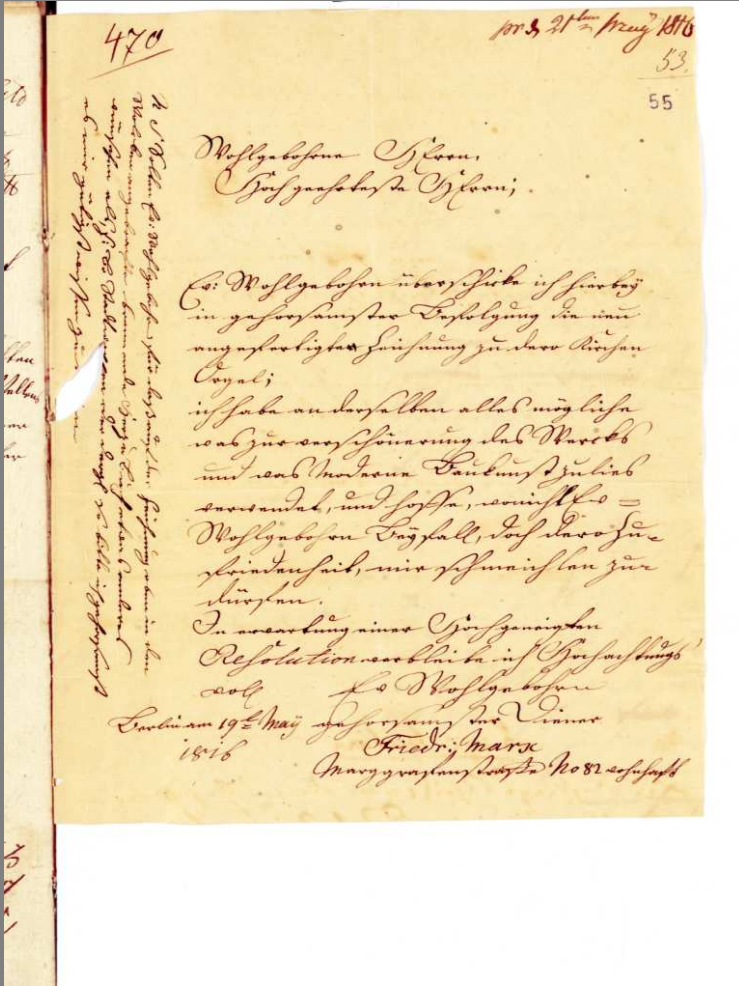 470
pr. d 21ten May 1816
53.
55
Wohlgebohrne Herrn,
Hochgeehrteste Herrn;
Ew: Wohlgebohrn überschicke ich hierbey
in gehorsamster Befolgung die neu
angefertigte Zeichnung zu dero Kirchen
Orgel;
ich habe an derselben alles mögliche
was zur verschönerung des Wercks
und was Moderne Baukunst zulies
verwendet, und hoffe, wo nicht Ew =
Wohlgebohrn Beyfall, doch dero Zu-
friedenheit, mir schmeichlen zu
dürfen.
In erwartung einer Hochgeneigten
Resolution verbleibe ich Hochachtungs
voll Ew Wohlgebohrn
Berlin am 19t May gehorsamster Diener
1816 Friedr: Marx
Marggrafenstraße No 82 wohnhaft
N S Sollten Ew: Wohlgebohrn, die auf der Zeichnung oben in den